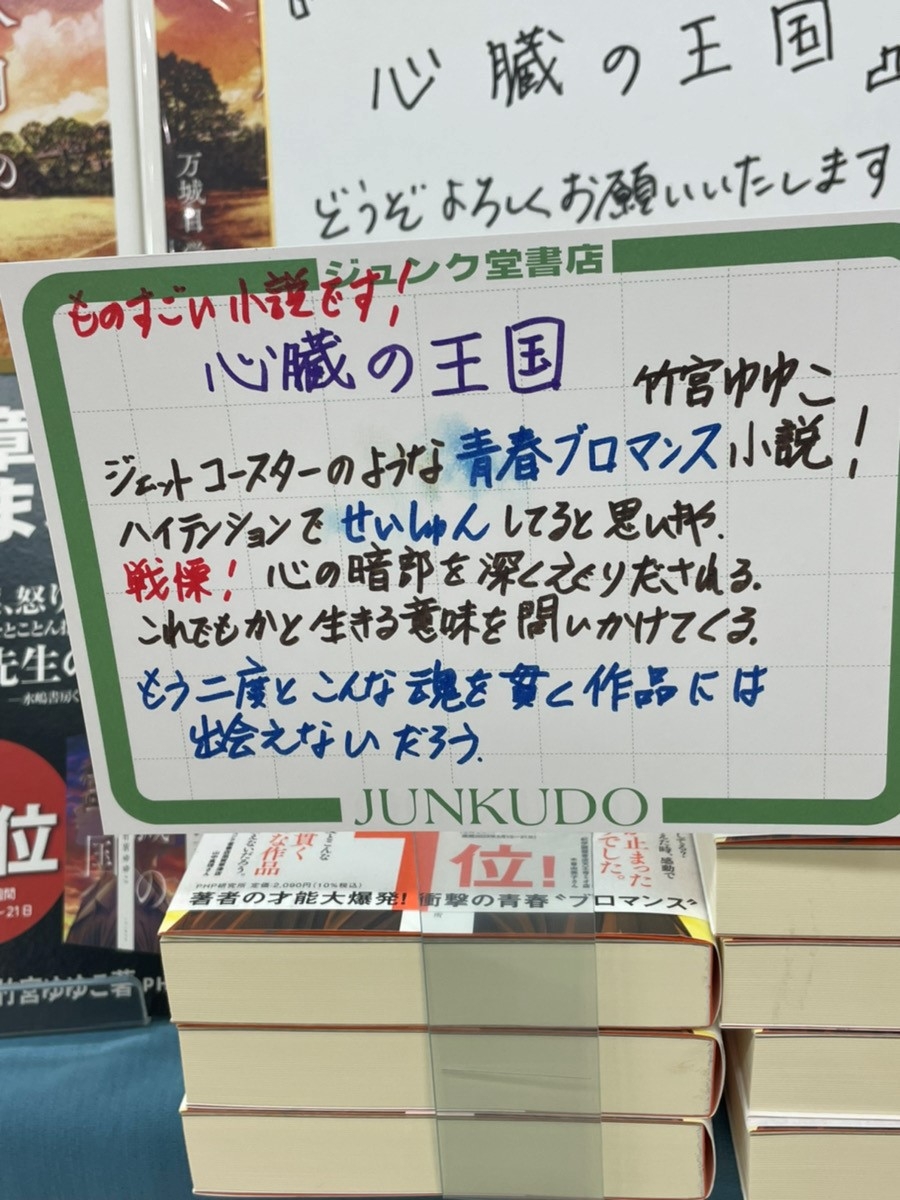 『
心臓の王国
どうぞよろしくお願いいたします
の
万城目学
ジュンク堂書店
ものすごい小説です!
心臓の王国
竹宮ゆゆこ
ジェットコースターのような青春ブロマンス小説!
ハイテンションでせいしゅんしてると思いきや、
戦慄! 心の暗部を深くえぐりだされる。
これでもかと生きる意味を問いかけてくる。
もう二度とこんな魂を貫く作品には
出会えないだろう。
JUNKUDO
章
ま
怒り
とことん
先生の
位
~21日
竹宮ゆゆこ著
PH
貫く
な作品
位!
止まった
でした。
PHP研究所 定価2,090円(10%税込)
著者の才能大爆発! 衝撃の青春“ブロマンス”